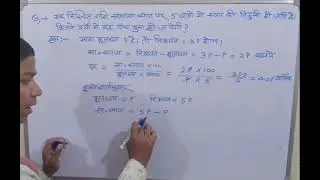 Q. एक निश्चित राशि साधारण ब्याज पर 5 वर्षों में स्वयं की तिगुनी हो जाती है।
कितने वर्ष में यह पांच गुना हो जाएगी?
हल:- माना मूलधन P है। तो मिश्रधन = 3P होगा।
सा० ब्याज = मिश्रधन - मूलधन = 3P - P = 2P रूपये
दर = सा० ब्याज × 100 = 2P × 100 = = 40% वार्षिक
P × 5
मूलधन = P मिश्रधन = 5P
सा० ब्याज = 5P - P